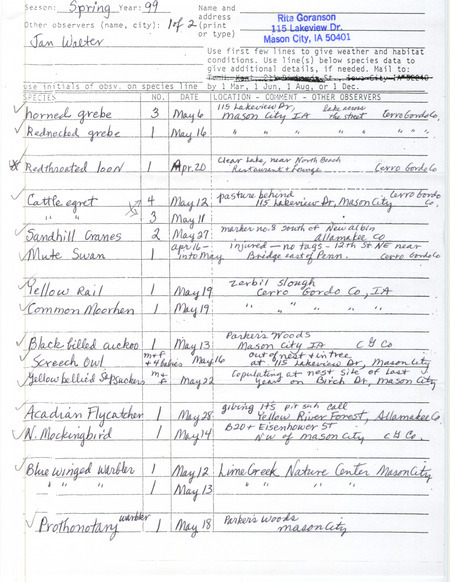 Season: Spring Year: 99
Name and address (print or type)
Rita Goranson
115 Lakeview Dr.
Mason City, IA 50401
Other observers (name, city): 1 of 2
Jan Walter
Use first few lines to give weather and habitat
conditions. Use line(s) below species data to
give additional details, if needed. Mail to:
use initials of obsv. on species line by 1 Mar, 1 Jun, 1 Aug, or 1 Dec.
SPECIES NO. DATE LOCATION - COMMENT - OTHER OBSERVERS
115 Lakeview Dr, lake across
horned grebe 3 May 6 Mason City IA the street Cerro Gordo Co.
Rednecked grebe 1 May 16 " " " "
Clear Lake, near North Beach
Redthroated loon 1 Apr. 20 Restaurant & Lounge Cerro Gordo Co
Cattle egret 4 May 12 pasture behind Cerro Gordo
115 Lakeview Dr, Mason City Co.
" " 3 May 11
marker no. 8 south of New albin
Sandhill Cranes 2 May 27 allamakee Co
apr 16 - injured - no tags - 12th St NE near
Mute Swan 1 into May Bridge east of Penn. Cerro Gordo Co
Zerbil Slough
Yellow Rail 1 May 19 Cerro Gordo Co, IA
Common Moorhen 1 May 19 " " " "
Parker's Woods
Black billed cuckoo 1 May 13 Mason City IA C G Co
Screech Owl m+f + 4 babies May 16 out of nest & in tree
at 115 Lakeview Dr, Mason City
Yellow bellied Sapsuckers m + f May 22 Copulating at nest site of last
year on Birch Dr, Mason City
giving its pit suh call
Acadian Flycatcher 1 May 28 Yellow River Forest, Allamakee Co
N. Mockingbird 1 May 14 B20 + Eisenhower St
NW of mason City C G Co.
Blue winged warbler 1 May 12 Lime Creek Nature Center Mason City
" " " 1 May 13 " " " "
Prothonotary warbler 1 May 18 Parker's Woods
mason City